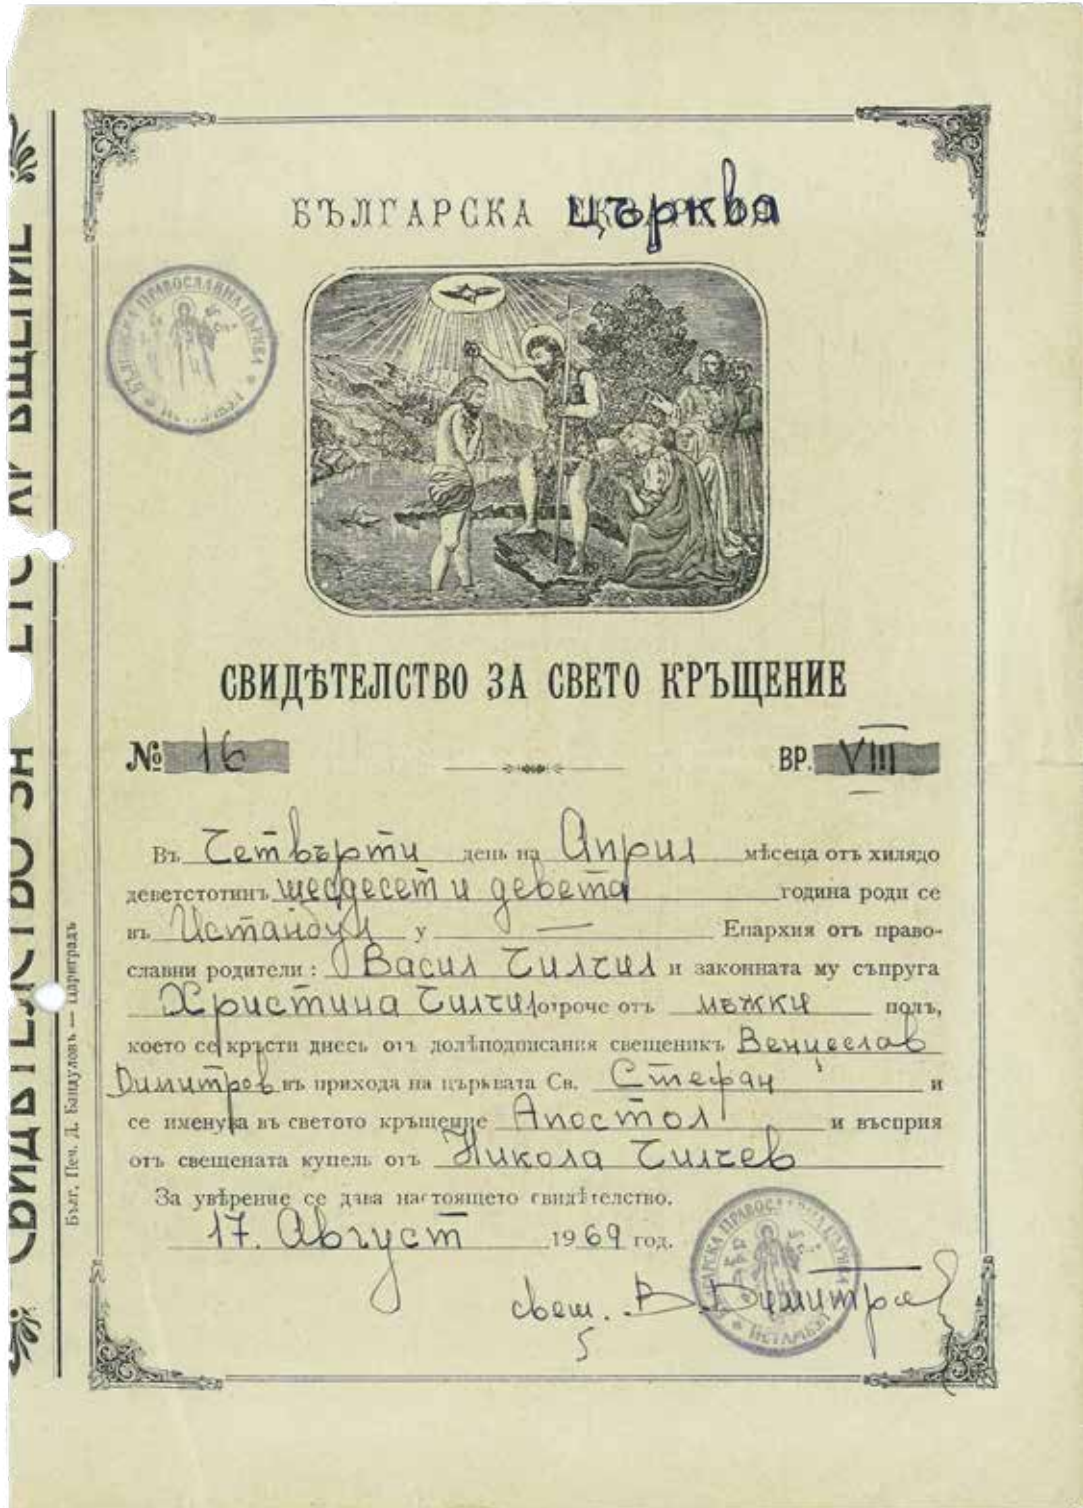 БЪЛГАРСКА църква
БЪЛГАРСКА ПРАВОСЛАВНА ЦЪРКВА
СВИДѢТЕЛСТВО ЗА СВЕТО КРЪЩЕНИЕ
№ 16 ВР. VIII
Въ Четвърти день на Април мѣсеца отъ хилядо
деветстотинъ шесдесет и девета година роди се
въ Истанбул у — Епархия отъ право-
славни родители: Васил Чилчил и законната му съпруга
Христина Чилчил отроче отъ мъжки полъ,
което се кръсти днесь отъ долѣподписания свещеникъ Венцеслав
Димитров въ прихода на църквата Св. Стефан и
се именува въ светото кръщение Апостол и възприя
отъ свещената купель отъ Никола Чилчев
За увѣрение се дава настоящето свидѣтелство.
17. Август 1969 год.
свещ. В. Димитров
БЪЛГАРСКА ПРАВОСЛАВНА ЦЪРКВА ИСТАМБУЛ
Бълг. Печ. Д. Бандуловъ — Цариградъ